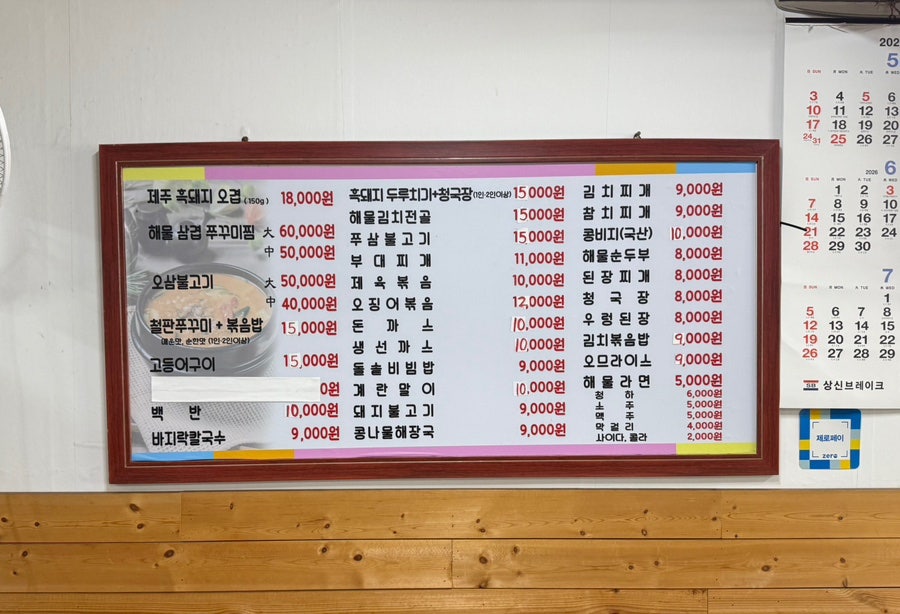 제주 흑돼지 오겹 (150g) 18,000원
해물 삼겹 푸꾸미찜 大 60,000원
中 50,000원
오삼불고기 大 50,000원
中 40,000원
철판푸꾸미 + 볶음밥 15,000원
(매운맛, 순한맛 (1인·2인이상)
고등어구이 15,000원
0원
백 반 10,000원
바지락칼국수 9,000원
흑돼지 두루치기+청국장(1인·2인이상) 15000원
해물김치전골 15000원
푸삼불고기 15,000원
부대찌개 11,000원
제육볶음 10,000원
오징어볶음 12,000원
돈 까 스 10,000원
생선까스 10,000원
돌솥비빔밥 9,000원
계란말이 10,000원
돼지불고기 9,000원
콩나물해장국 9,000원
김치찌개 9,000원
참치찌개 9,000원
콩비지(국산) 10,000원
해물순두부 8,000원
된장찌개 8,000원
청 국 장 8,000원
우렁된장 8,000원
김치볶음밥 9,000원
오므라이스 9,000원
해물라면 5,000원
청 하 6,000원
소 주 5,000원
맥 주 5,000원
막걸리 4,000원
사이다, 콜라 2,000원
202
5
SUN MON TUE WED
3 4 5 6
10 11 12 13
17 18 19 20
24/31 25 26 27
2026 6
1 2 3
7 8 9 10
14 15 16 17
21 22 23 24
28 29 30
7
1
5 6 7 8
12 13 14 15
19 20 21 22
26 27 28 29
SB 상신브레이크
제로페이
zero